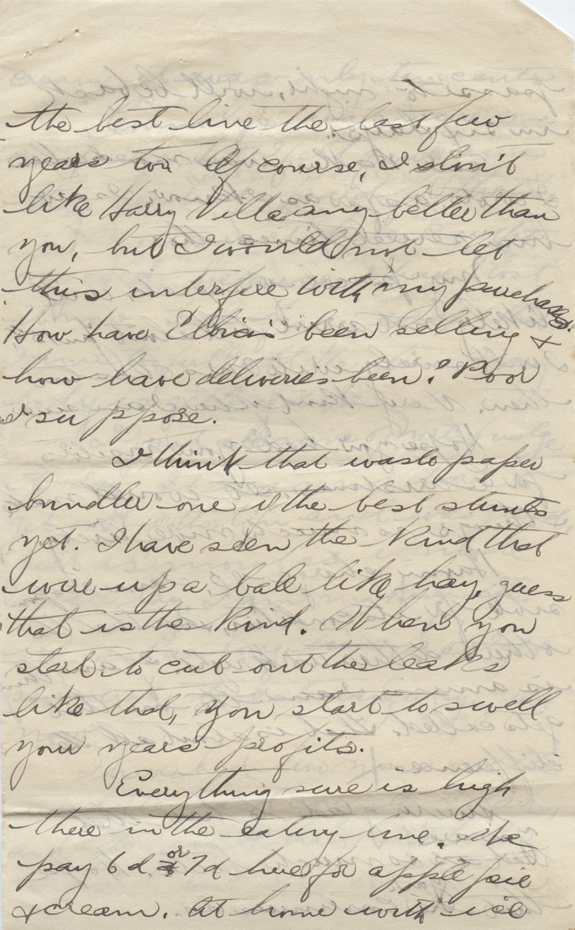 the best live the last few
years too Of course, I don't
like Harry Ville any better than
you, but I would not let
this interfere with my purchases.
How have Elvia's been selling &
how have deliveries been? Poor
I suppose.
I think that waste paper
bundler one of the best stunts
yet. I have seen the kind that
wire up a bale like hay, guess
that is the kind. When you
start to cut out the leaks
like that, you start to swell
your years profits.
Everything sure is high
there in the eating line. We
pay 6d or 7d here for apple pie
& cream. At home with ice